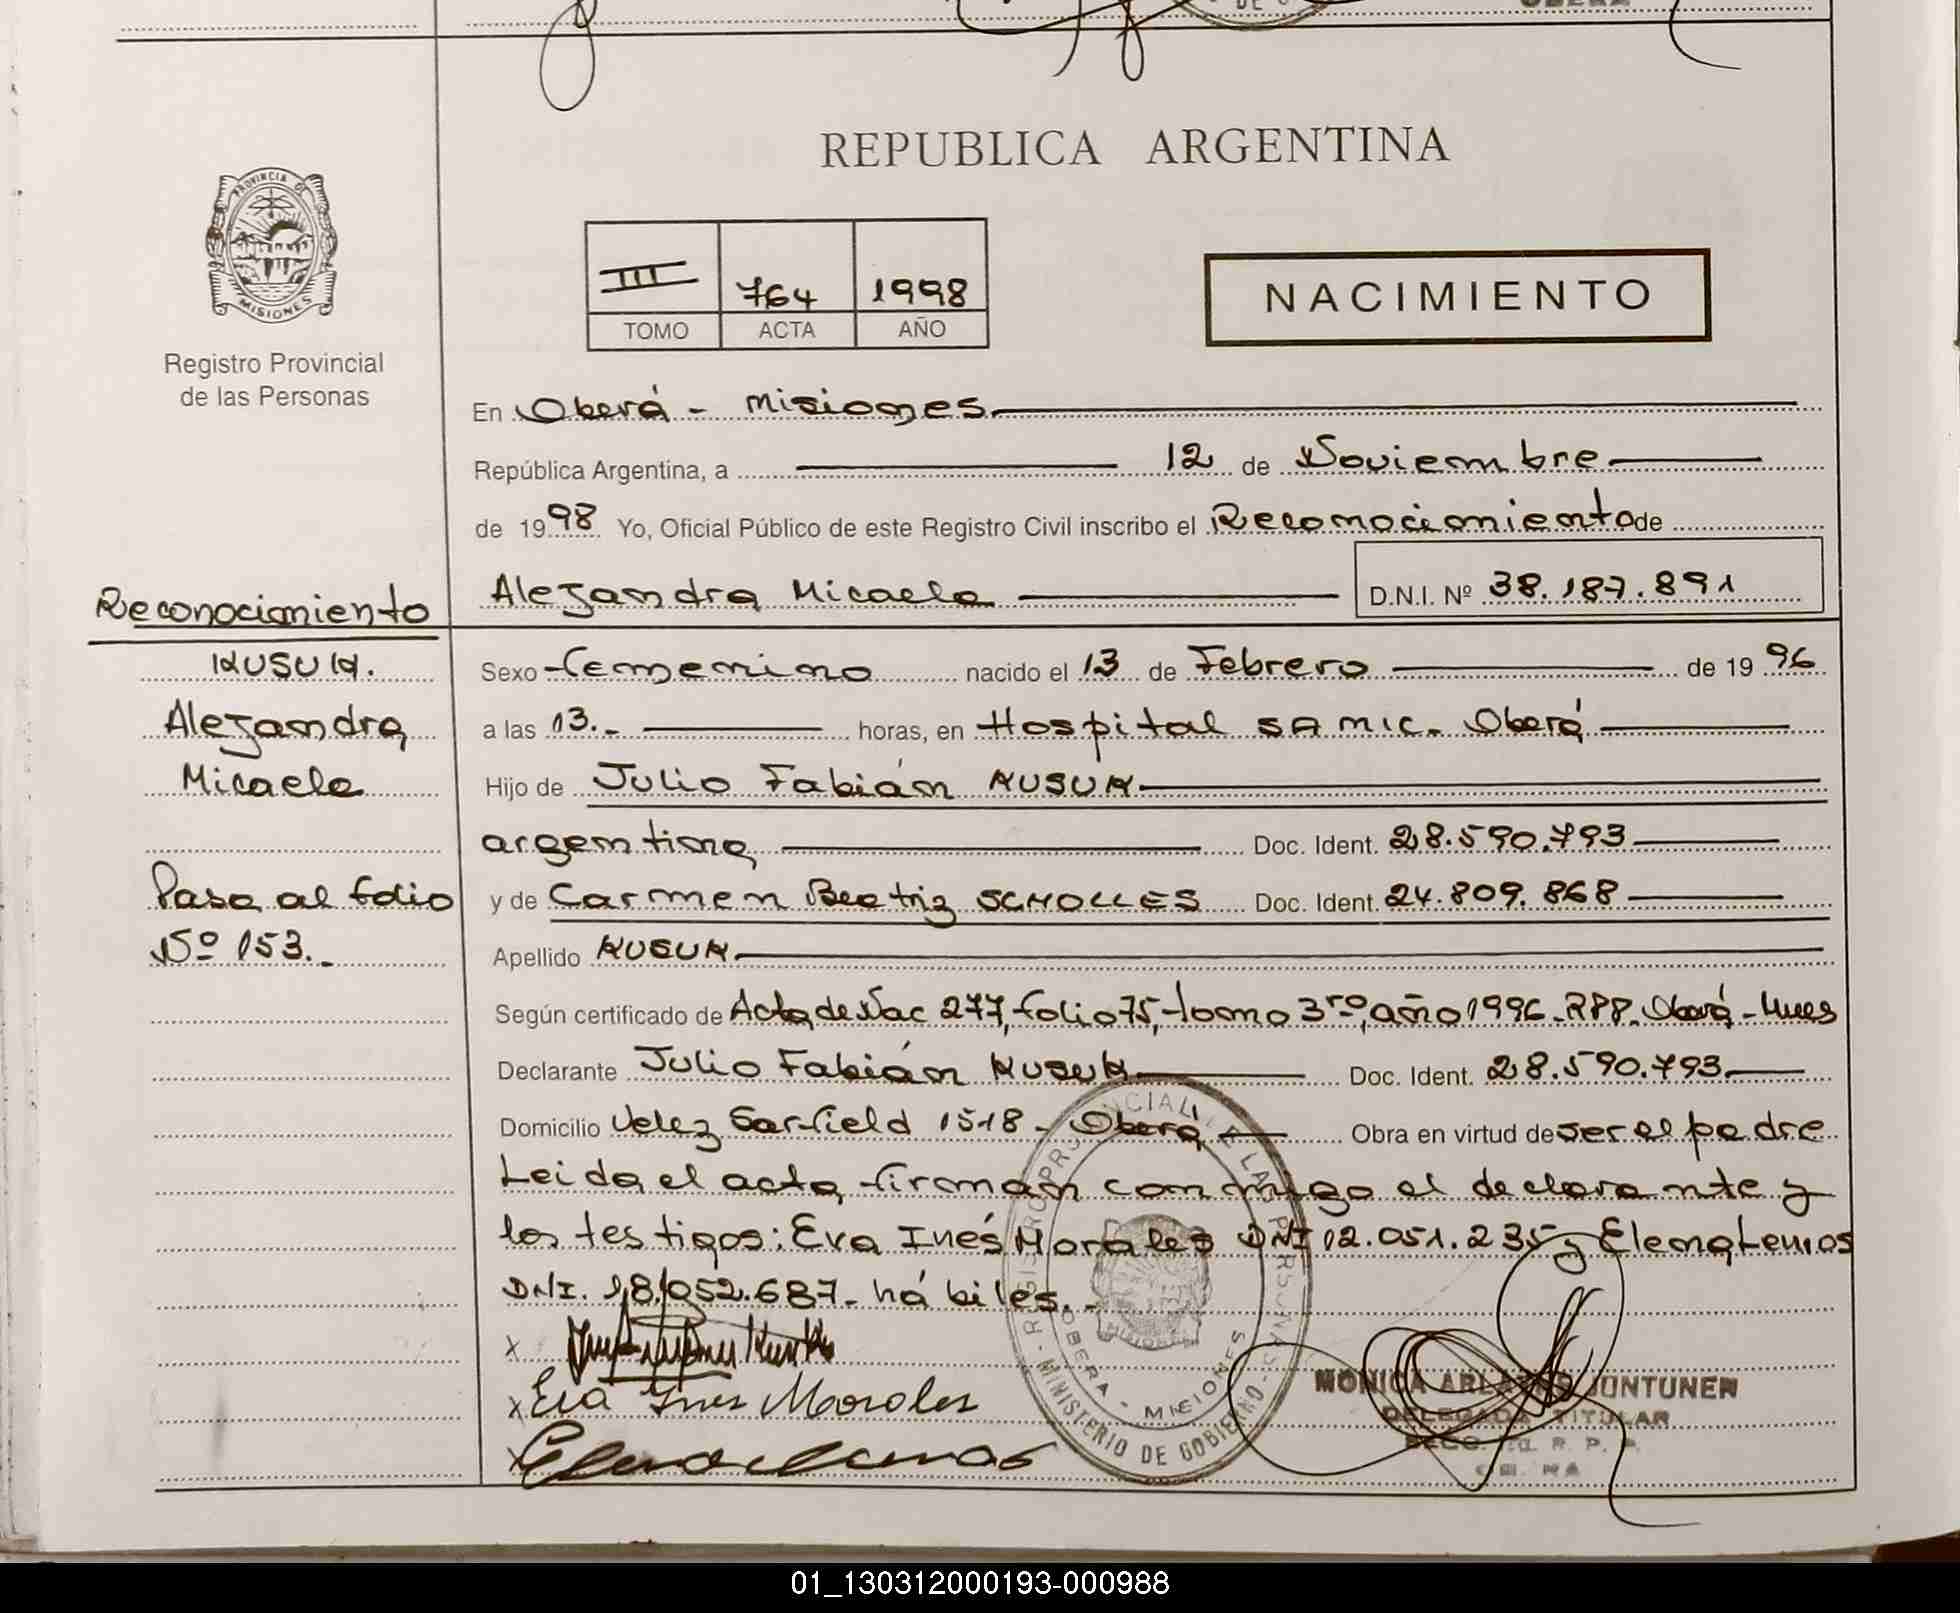 REPUBLICA ARGENTINA
PROVINCIA DE
MISIONES
Registro Provincial
de las Personas
III 764 1998
TOMO ACTA AÑO
NACIMIENTO
En Oberá - Misiones
República Argentina, a 12 de Noviembre
de 1998 Yo, Oficial Público de este Registro Civil inscribo el Reconocimiento de
Alejandra Micaela D.N.I. Nº 38.187.891
Reconocimiento
KUSUK.
Alejandra
Micaela
Pasa al folio
Nº 153.-
Sexo femenino nacido el 13 de Febrero de 1996
a las 13.- horas, en Hospital SAMIC. Oberá
Hijo de Julio Fabián KUSUK
argentina Doc. Ident. 28.590.793
y de Carmen Beatriz SCHOLLES Doc. Ident. 24.809.868
Apellido KUSUK
Según certificado de Acta de Nac 277, folio 75, tomo 3ro, año 1996. RPP. Oberá - Mnes
Declarante Julio Fabián KUSUK Doc. Ident. 28.590.793
Domicilio Velez Sarfield 1518 - Oberá Obra en virtud de ser el padre
Leida el acta, firman conmigo el declarante y
los testigos: Eva Inés Morales DNI 12.051.235 y Elena Lemos
DNI. 18.052.687- hábiles.-
x
x Eva Ines Morales
x
REGISTRO PROVINCIAL DE LAS PERSONAS - MINISTERIO DE GOBIERNO
OBERA - MISIONES
MONICA JUNTUNEN
DELEGADA TITULAR
R. P. P.
OBERA
01_130312000193-000988